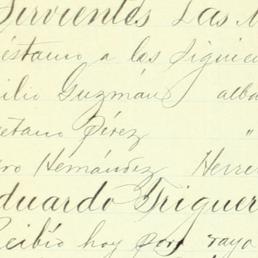 Sirvientes Las
éstamo a las siguie
ilio Guzmán alba
etano Pérez "
ro Hernández Herre
duardo Triguer
Recibió hoy por raya